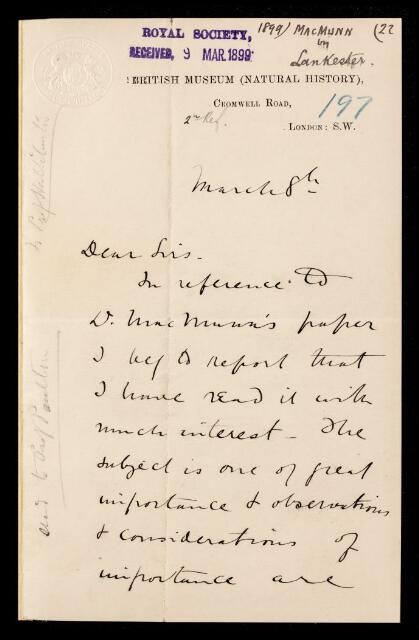 ROYAL SOCIETY,
RECEIVED, 9 MAR 1899
1899/ MacMunn (22
by
Lankester.
BRITISH MUSEUM (NATURAL HISTORY),
CROMWELL ROAD,
2nd Ref.
197
LONDON: S.W.
March 8th
Dear Sirs -
In reference to
Dr. MacMunn's paper
I beg to report that
I have read it with
much interest - The
subject is one of great
importance & observations
& considerations of
importance are
send to Prof Poulton
& Prof